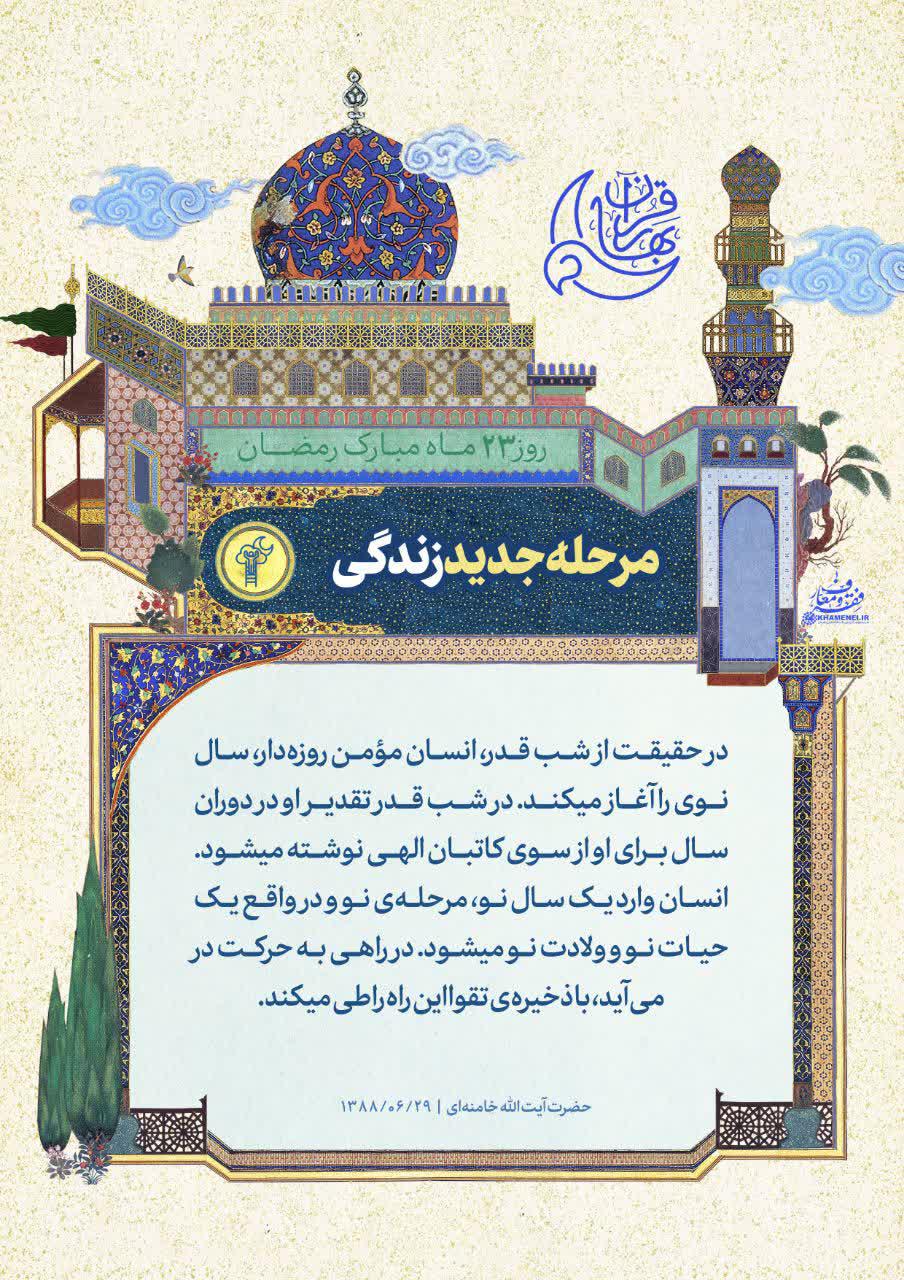 بهار قرآن
روز ۲۳ ماه مبارک رمضان
مرحله جدید زندگی
فقه و معارف
KHAMENEI.IR
در حقیقت از شب قدر، انسان مؤمن روزه‌دار، سال
نوی را آغاز میکند. در شب قدر تقدیر او در دوران
سال برای او از سوی کاتبان الهی نوشته میشود.
انسان وارد یک سال نو، مرحله‌ی نو و در واقع یک
حیات نو و ولادت نو میشود. در راهی به حرکت در
می‌آید، با ذخیره‌ی تقوا این راه را طی میکند.
حضرت آیت‌الله خامنه‌ای | ۱۳۸۸/۰۶/۲۹